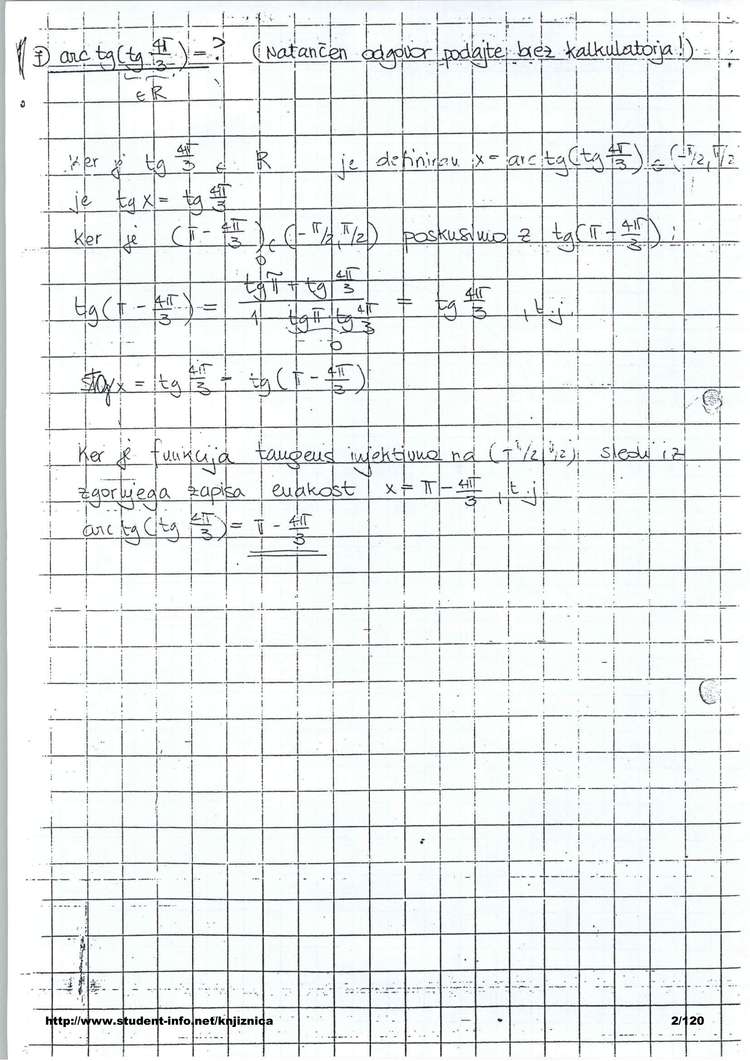 7) arc tg(tg 4π/3) = ? (Natančen odgovor podajte brez kalkulatorja!)
∈ R
Ker je tg 4π/3 ∈ R je definiran x = arc tg(tg 4π/3) ∈ (-π/2, π/2
je tg x = tg 4π/3
Ker je (π - 4π/3) ∈ (-π/2, π/2) poskusimo z tg(π - 4π/3):
tg(π - 4π/3) = (tg π + tg 4π/3) / (1 - tg π tg 4π/3) = tg 4π/3 , t.j.
0
tg x = tg 4π/3 = tg(π - 4π/3)
Ker je funkcija tangens injektivna na (-π/2, π/2), sledi iz
zgornjega zapisa enakost x = π - 4π/3, t.j
arc tg(tg 4π/3) = π - 4π/3
http://www.student-info.net/knjiznica
2/120